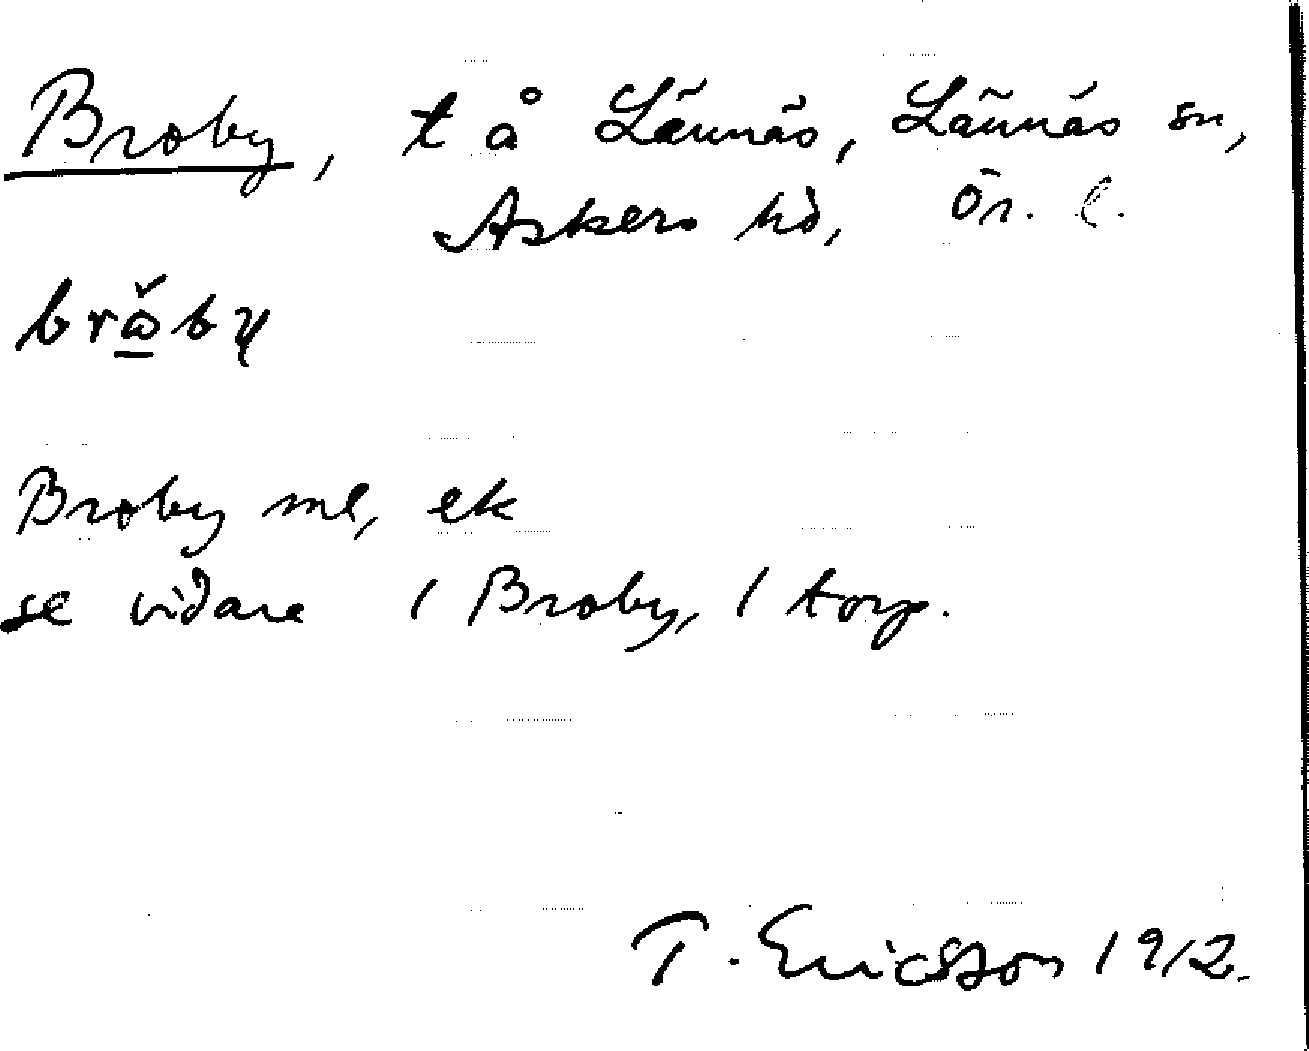 Broby, t å Lännäs, Lännäs sn,
Askers hd, Ör. l.
Broby ml, ek
se vidare 1 Broby, 1 torp.
T. Ericsson 1912.